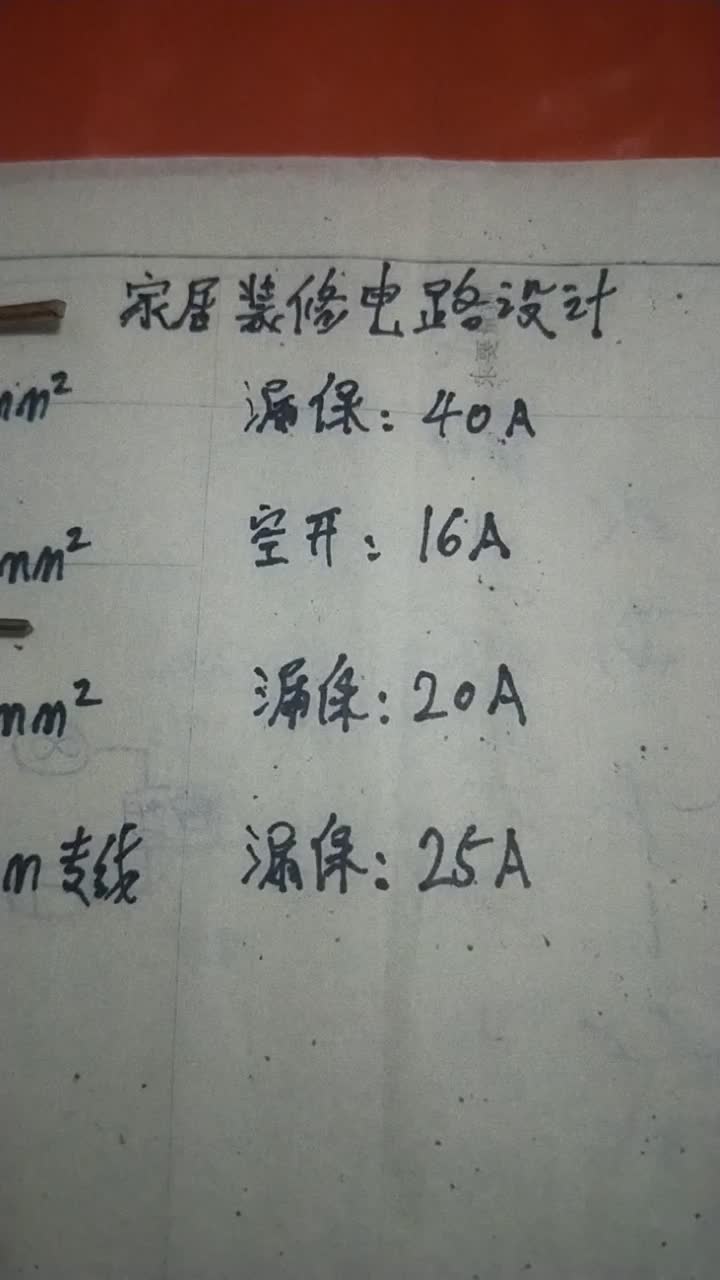 家居装修电路设计
mm² 漏保：40A
mm² 空开：16A
mm² 漏保：20A
m 专线 漏保：25A